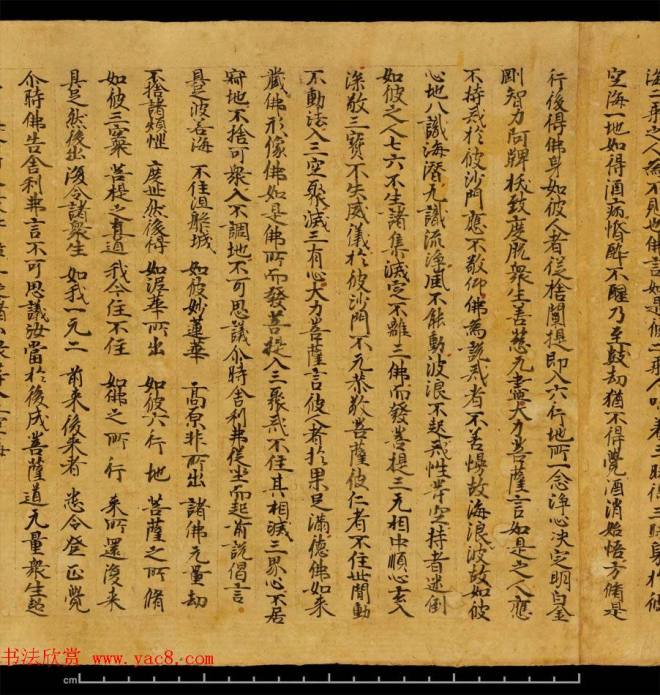 海二乘之人為不見也佛言如是彼二乘人味著三昧得三昧身於彼
空海一地如得酒病惛醉不醒乃至數劫猶不得覺酒消始悟方脩是
行後得佛身如彼人者從捨闡提即入六行地所一念淨心決定明白金
剛智力阿鞞跋致度脫衆生善慈无盡大力菩薩言如是之人應
不持戒於彼沙門應不敬仰佛為說戒者不善慢故海浪波故如彼
心地八識海澄九識流淨風不能動波浪不起戒性等空持者迷倒
如彼之人七六不生諸集滅定不離三佛而發菩提三无相中順心玄入
深敬三寶不失威儀於彼沙門不无恭敬菩薩彼仁者不住世間動
不動法入三空聚滅三有心大力菩薩言彼人者於果足滿德佛如來
藏佛形像佛如是佛所而發菩提入三聚戒不住其相滅三界心不居
寂地不捨可衆入不調地不可思議尒時舍利弗從坐而起前說偈言
具足波若海 不住涅槃城 如彼妙蓮華 高原非所出 諸佛无量劫
不捨諸煩惱 度世然後得 如泥華所出 如彼六行地 菩薩之所脩
如彼三空聚 菩提之真道 我今住不住 如佛之所行 來所還復來
具足然後出 復令諸衆生 如我一无二 前來後來者 悉令登正覺
尒時佛告舍利弗言不可思議汝當於後成菩薩道无量衆生超
书法欣赏 www.yac8.com
cm